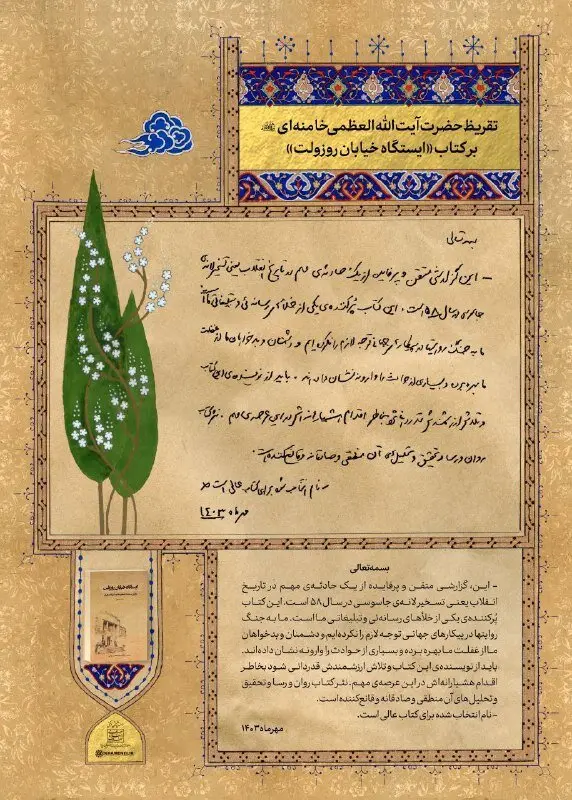 تقریظ حضرت آیت‌الله العظمی خامنه‌ای
بر کتاب «ایستگاه خیابان روزولت»
بسمه تعالی
– این گزارشی متقن و پرفایده از یک حادثه‌ی مهم در تاریخ انقلاب یعنی تسخیر لانه‌ی
جاسوسی در سال ۵۸ است. این کتاب پُرکننده‌ی یکی از خلأهای رسانه‌ئی و تبلیغاتی ما است
ما به جنگ روایتها در پیکارهای جهانی توجه لازم را نکرده‌ایم و دشمنان و بدخواهان ما از غفلت
ما بهره برده و بسیاری از حوادث را وارونه نشان داده‌اند. باید از نویسنده‌ی این کتاب
و تلاش ارزشمندش قدردانی شود بخاطر اقدام هشیارانه‌اش در این عرصه‌ی مهم. نثر کتاب
روان و رسا و تحقیق و تحلیل‌های آن منطقی و صادقانه و قانع‌کننده است.
– نام انتخاب شده برای کتاب عالی است
مهرماه ۱۴۰۳
ایستگاه خیابان روزولت
بسمه‌تعالی
– این، گزارشی متقن و پرفایده از یک حادثه‌ی مهم در تاریخ
انقلاب یعنی تسخیر لانه‌ی جاسوسی در سال ۵۸ است. این کتاب
پُرکننده‌ی یکی از خلأهای رسانه‌ئی و تبلیغاتی ما است. ما به جنگ
روایتها در پیکارهای جهانی توجه لازم را نکرده‌ایم و دشمنان و بدخواهان
ما از غفلت ما بهره برده و بسیاری از حوادث را وارونه نشان داده‌اند.
باید از نویسنده‌ی این کتاب و تلاش ارزشمندش قدردانی شود بخاطر
اقدام هشیارانه‌اش در این عرصه‌ی مهم. نثر کتاب روان و رسا و تحقیق
و تحلیل‌های آن منطقی و صادقانه و قانع‌کننده است.
– نام انتخاب شده برای کتاب عالی است.
مهرماه ۱۴۰۳
KHAMENEI.IR